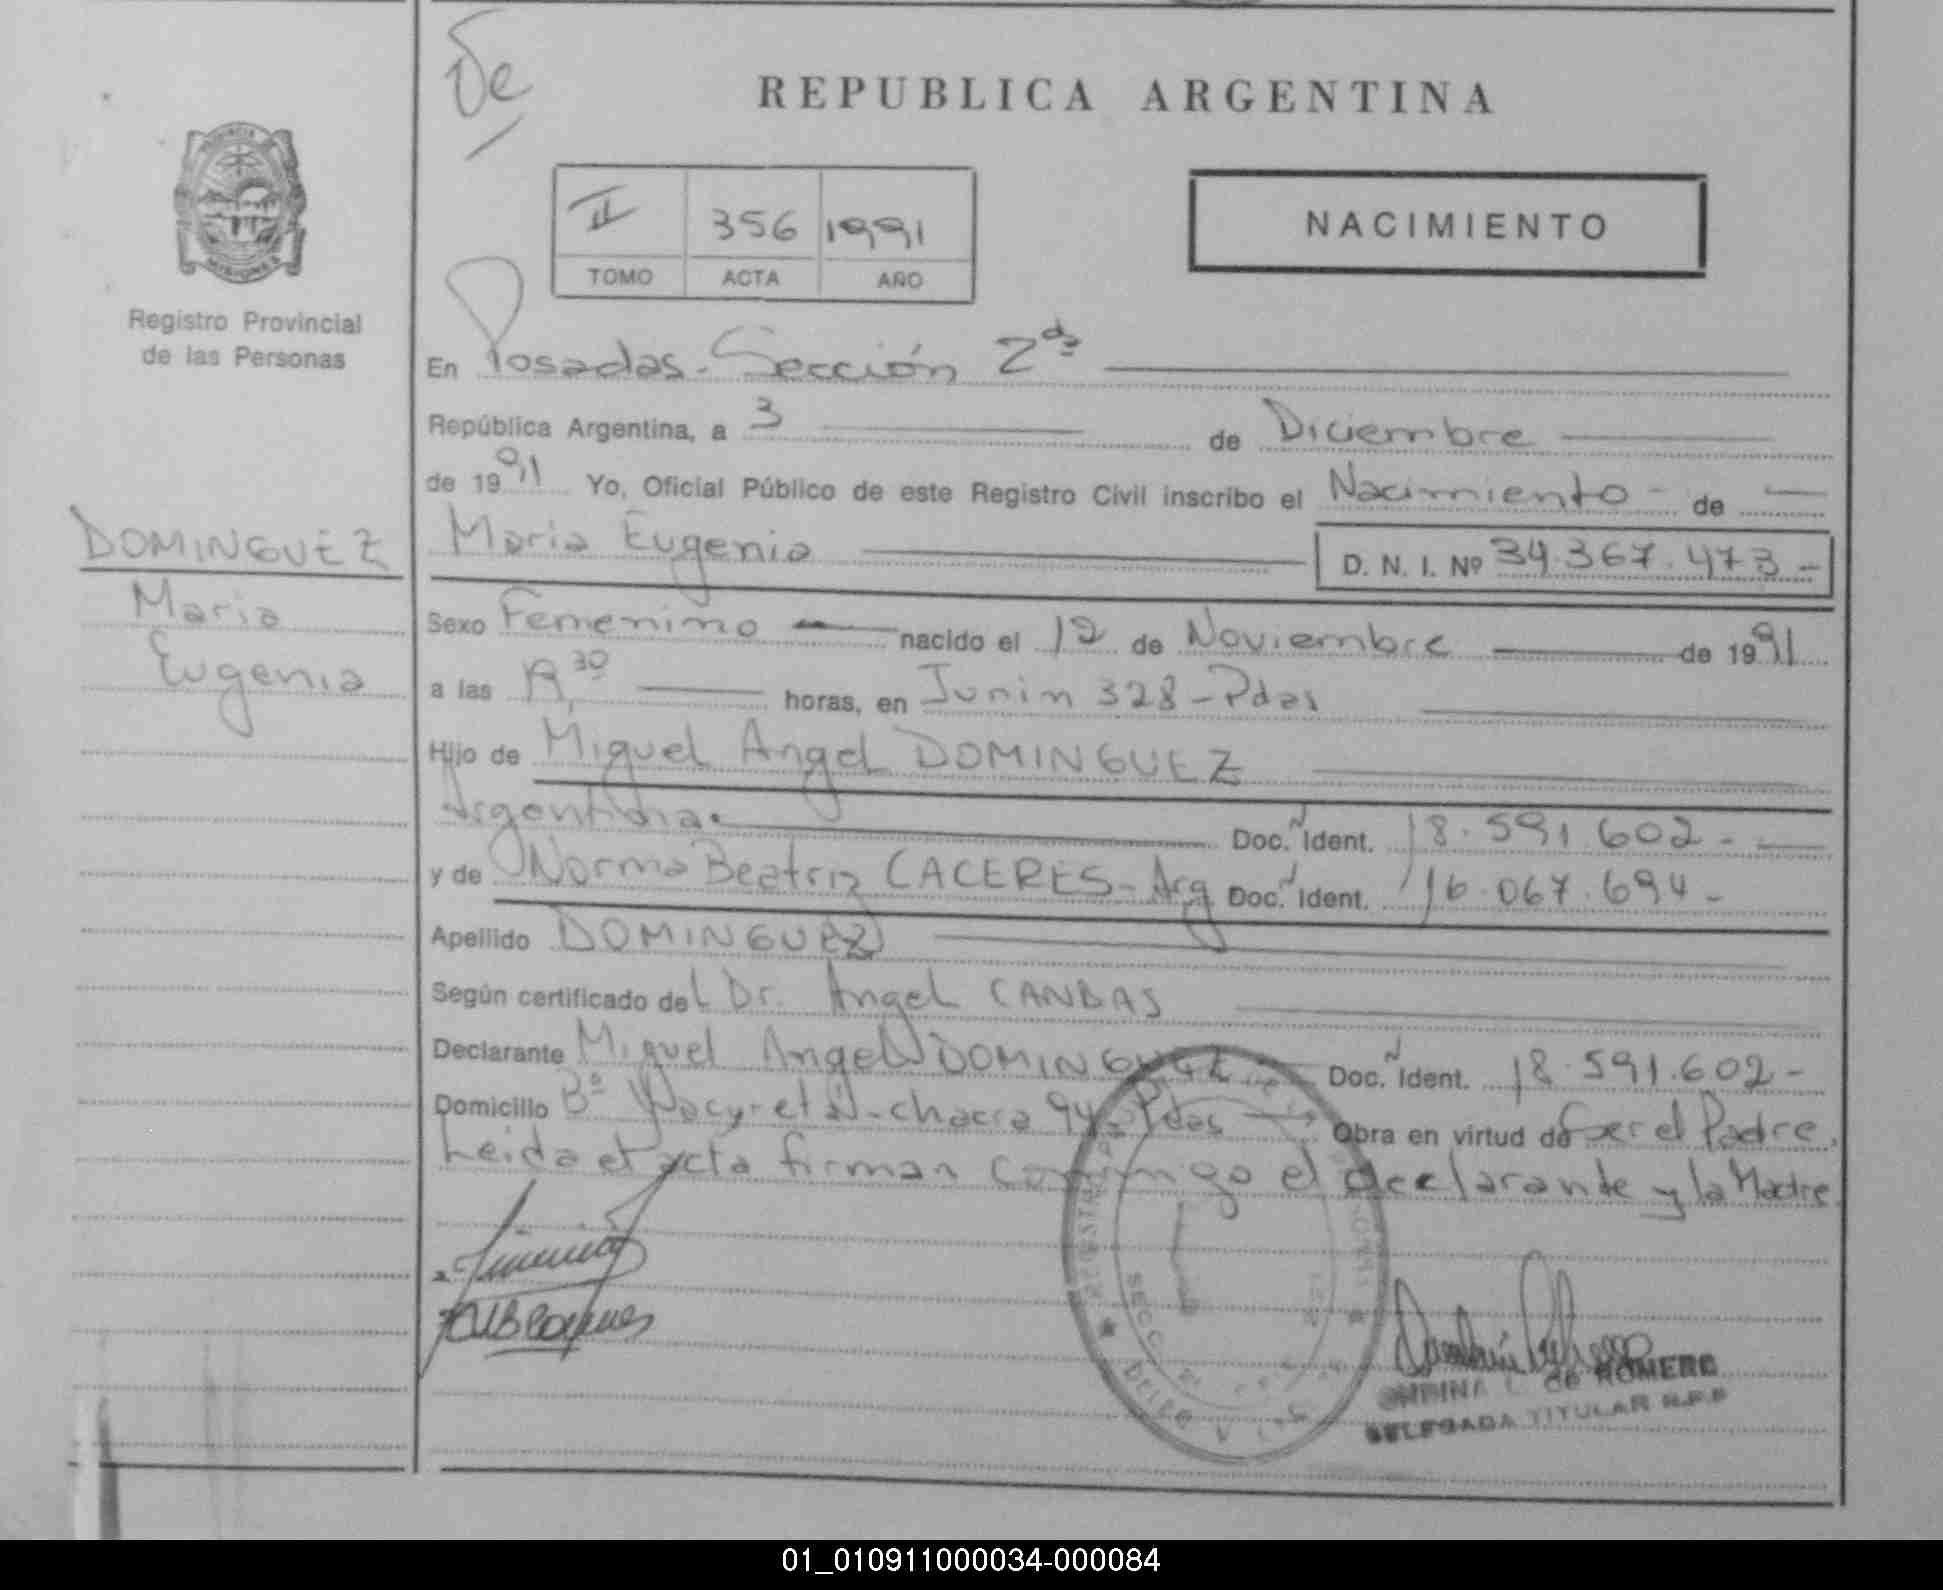 De
REPUBLICA ARGENTINA
II 356 1991
TOMO ACTA AÑO
NACIMIENTO
MISIONES
Registro Provincial
de las Personas
DOMINGUEZ
Maria
Eugenia
En Posadas - Sección 2da
República Argentina, a 3 de Diciembre
de 1991 Yo, Oficial Público de este Registro Civil inscribo el Nacimiento - de
Maria Eugenia D. N. I. Nº 34.367.473-
Sexo Femenino nacido el 12 de Noviembre de 1991
a las 19,30 horas, en Junin 328 - Pdas
Hijo de Miguel Angel DOMINGUEZ
Argentina. Doc. N Ident. 18.591.602-
y de Norma Beatriz CACERES - Arg Doc. N Ident. 16.067.694-
Apellido DOMINGUEZ
Según certificado del Dr. Angel
Declarante Miguel Angel DOMINGUEZ Doc. N Ident. 18.591.602-
Domicilio Bº Yacyretá - chacra 94 - Pdas Obra en virtud de Ser el Padre.
Leida el acta firman conmigo el declarante y la Madre
DE ROMERO
DELEGADA TITULAR R.P.P
01_010911000034-000084